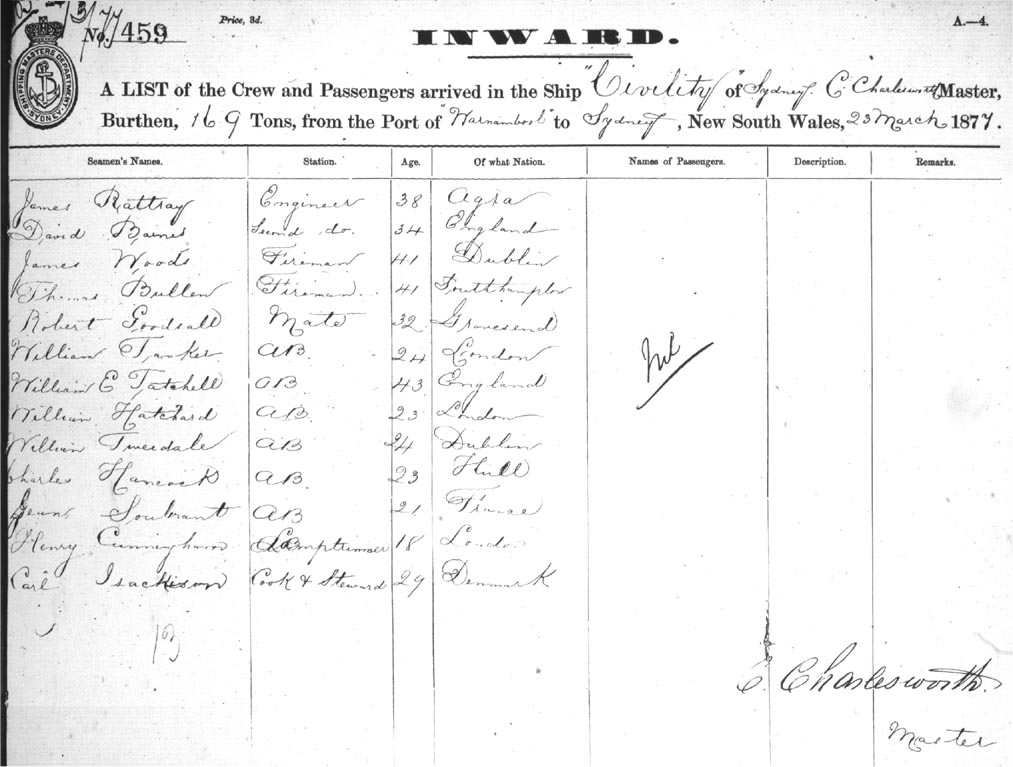 Price, 3d.
A.—4.
No. 459
INWARD.
SHIPPING MASTERS DEPARTMENT SYDNEY
A LIST of the Crew and Passengers arrived in the Ship "Civility" of Sydney C Charlesworth Master,
Burthen, 169 Tons, from the Port of "Warnambool" to Sydney, New South Wales, 23 March 1877.
Seamen's Names. Station. Age. Of what Nation. Names of Passengers. Description. Remarks.
James Rattray Engineer 38 Agra
David Baines Second do. 34 England
James Woods Fireman 41 Dublin
Thomas Bullen Fireman 41 Southampton
Robert Goodsall Mate 32 Gravesend
William AB. 24 London
William E Tatchell AB 43 England
William Hatchard AB. 23 London
William Tweedale AB 24 Dublin
Charles Hancock AB. 23 Hull
Soubrant AB 21 France
Henry Cunningham 18 London
Carl Isackison Cook & Steward 29 Denmark
Nil
13
C. Charlesworth.
Master